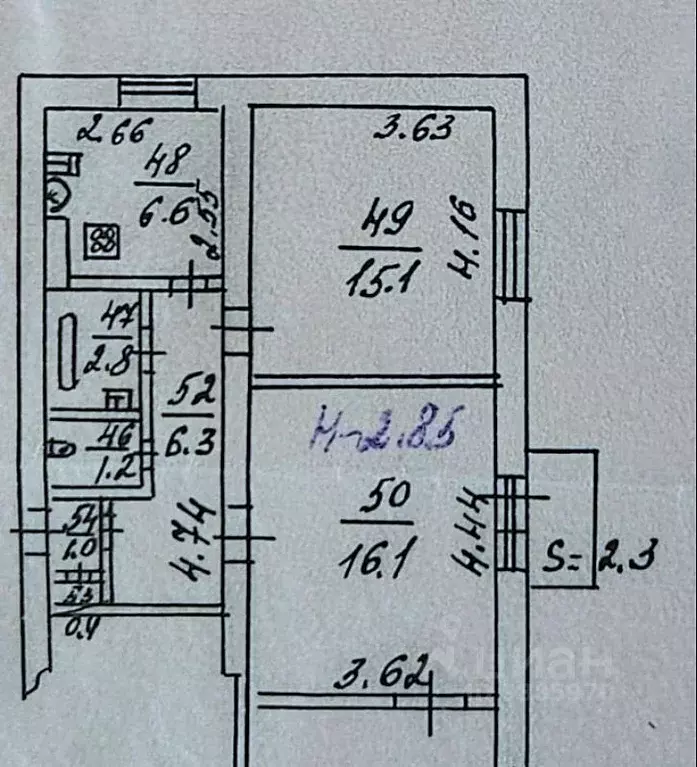 2.66
48
6.6
2.55
3.63
49
15.1
4.16
47
2.8
52
6.3
46
1.2
H-2.85
50
16.1
4.44
4.74
54
1.0
53
0.4
S=2.3
3.62
циан